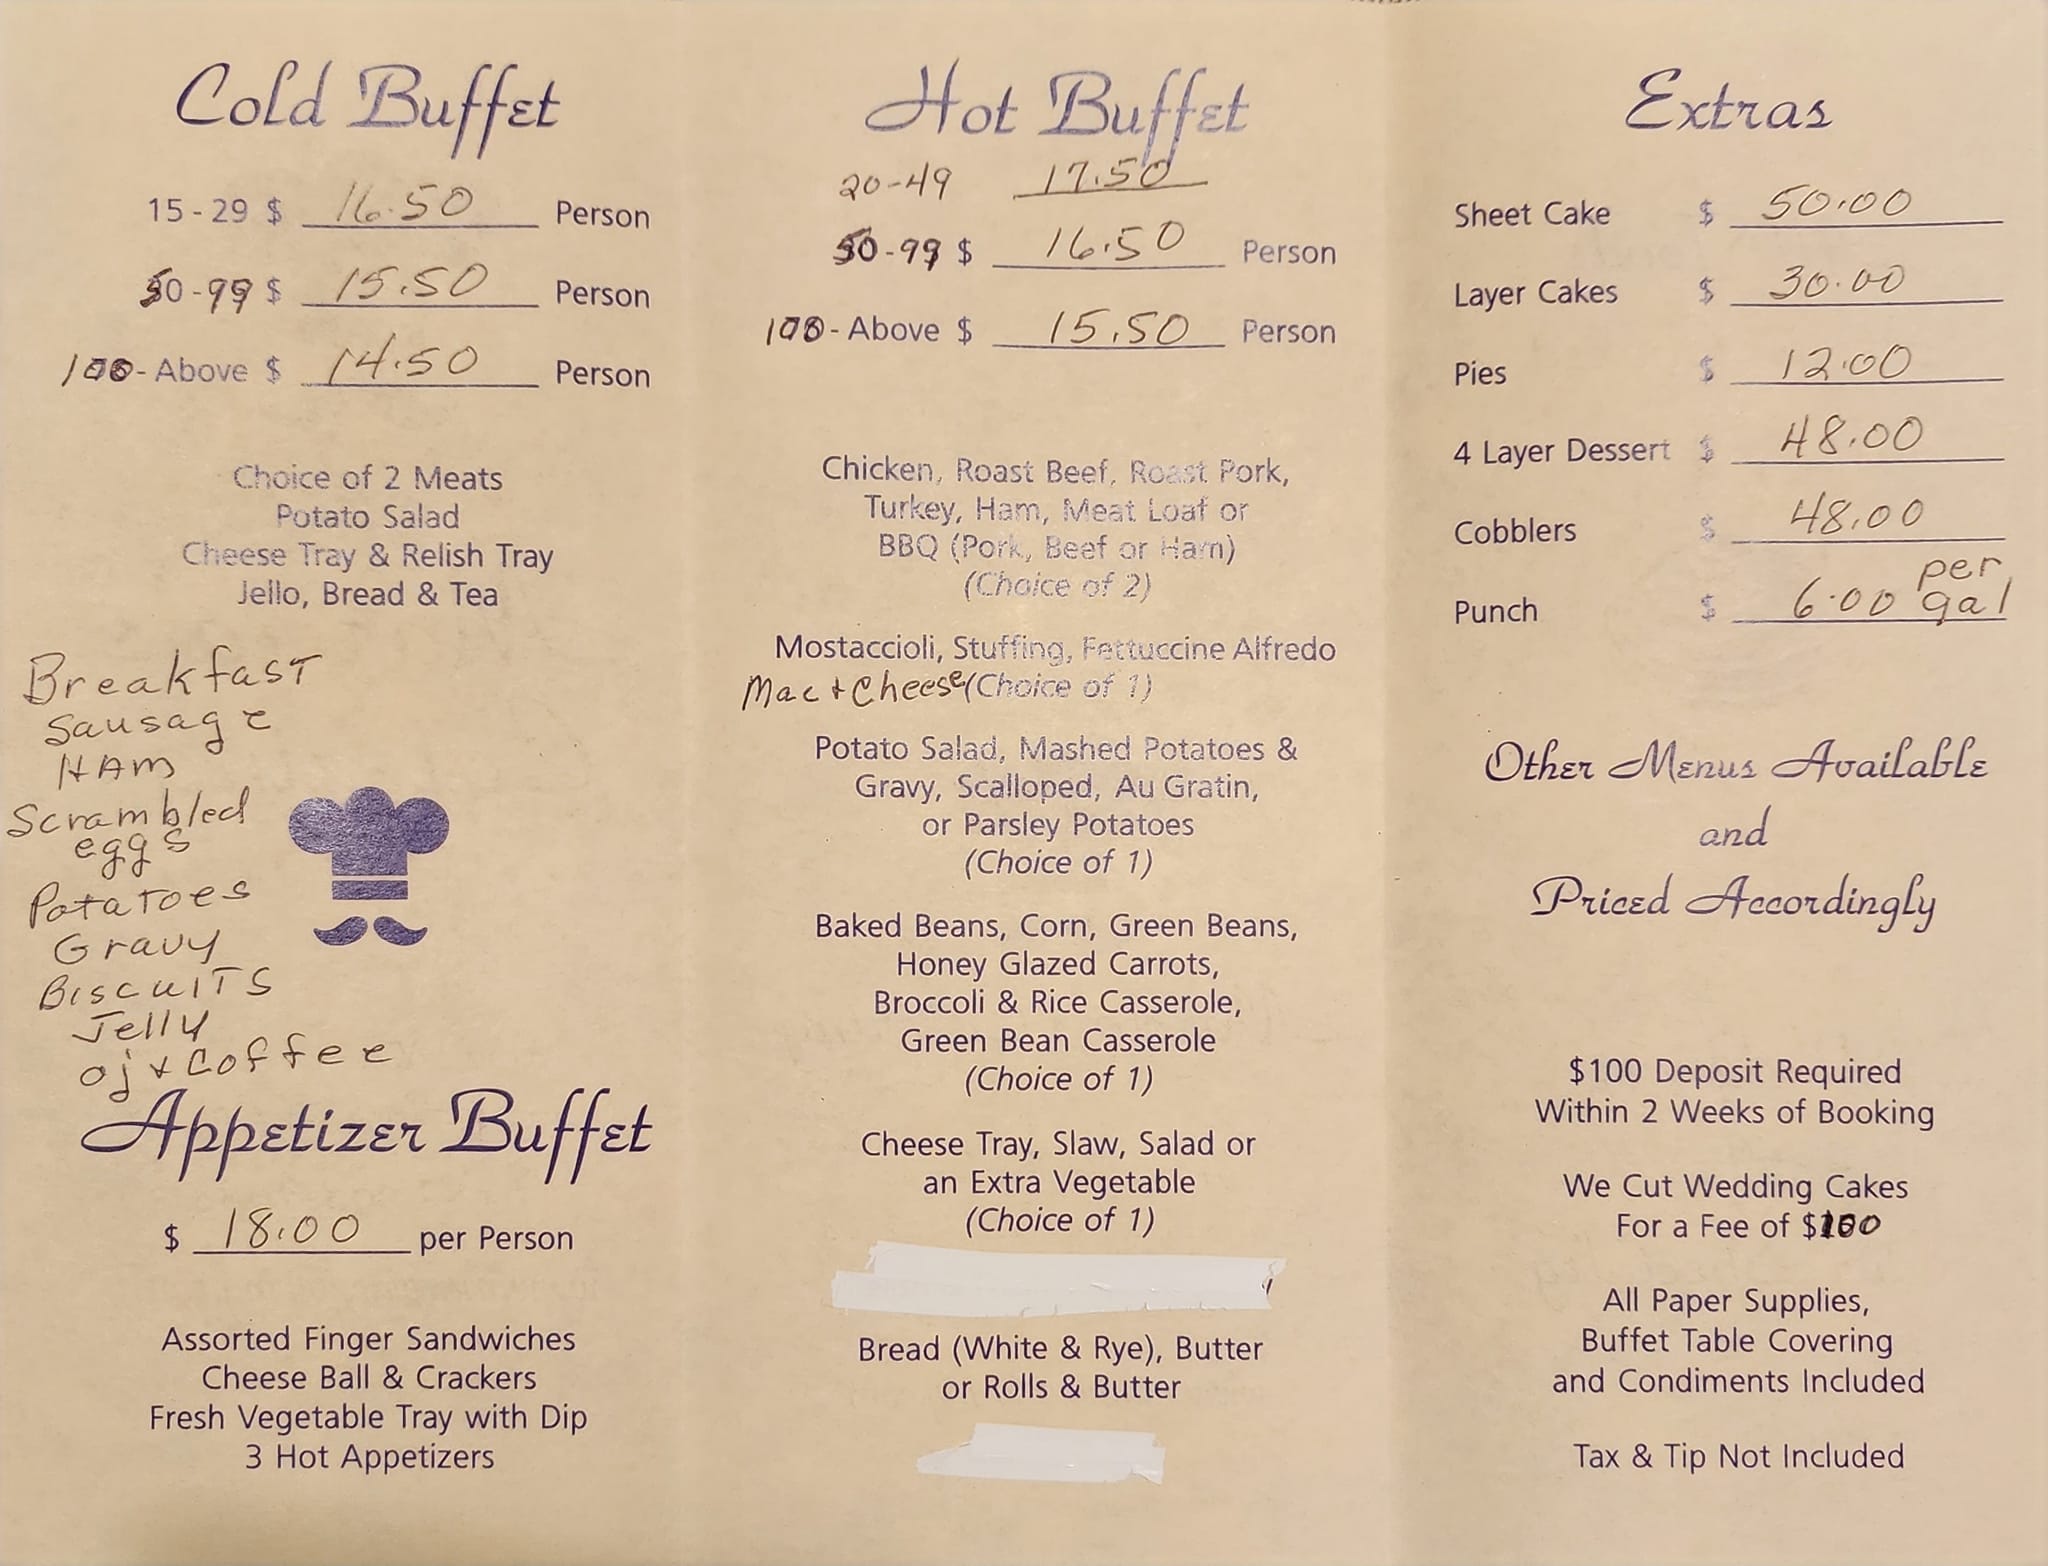 Cold Buffet
15 - 29 $ 16.50 Person
50 - 99 $ 15.50 Person
100 - Above $ 14.50 Person
Choice of 2 Meats
Potato Salad
Cheese Tray & Relish Tray
Jello, Bread & Tea
Breakfast
Sausage
HAM
Scrambled
eggs
Potatoes
Gravy
Biscuits
Jelly
oj + Coffee
Appetizer Buffet
$ 18.00 per Person
Assorted Finger Sandwiches
Cheese Ball & Crackers
Fresh Vegetable Tray with Dip
3 Hot Appetizers
Hot Buffet
20-49 17.50
50 - 99 $ 16.50 Person
100 - Above $ 15.50 Person
Chicken, Roast Beef, Roast Pork,
Turkey, Ham, Meat Loaf or
BBQ (Pork, Beef or Ham)
(Choice of 2)
Mostaccioli, Stuffing, Fettuccine Alfredo
Mac + Cheese (Choice of 1)
Potato Salad, Mashed Potatoes &
Gravy, Scalloped, Au Gratin,
or Parsley Potatoes
(Choice of 1)
Baked Beans, Corn, Green Beans,
Honey Glazed Carrots,
Broccoli & Rice Casserole,
Green Bean Casserole
(Choice of 1)
Cheese Tray, Slaw, Salad or
an Extra Vegetable
(Choice of 1)
Bread (White & Rye), Butter
or Rolls & Butter
Extras
Sheet Cake $ 50.00
Layer Cakes $ 30.00
Pies $ 12.00
4 Layer Dessert $ 48.00
Cobblers $ 48.00
Punch $ 6.00 per gal
Other Menus Available
and
Priced Accordingly
$100 Deposit Required
Within 2 Weeks of Booking
We Cut Wedding Cakes
For a Fee of $100
All Paper Supplies,
Buffet Table Covering
and Condiments Included
Tax & Tip Not Included